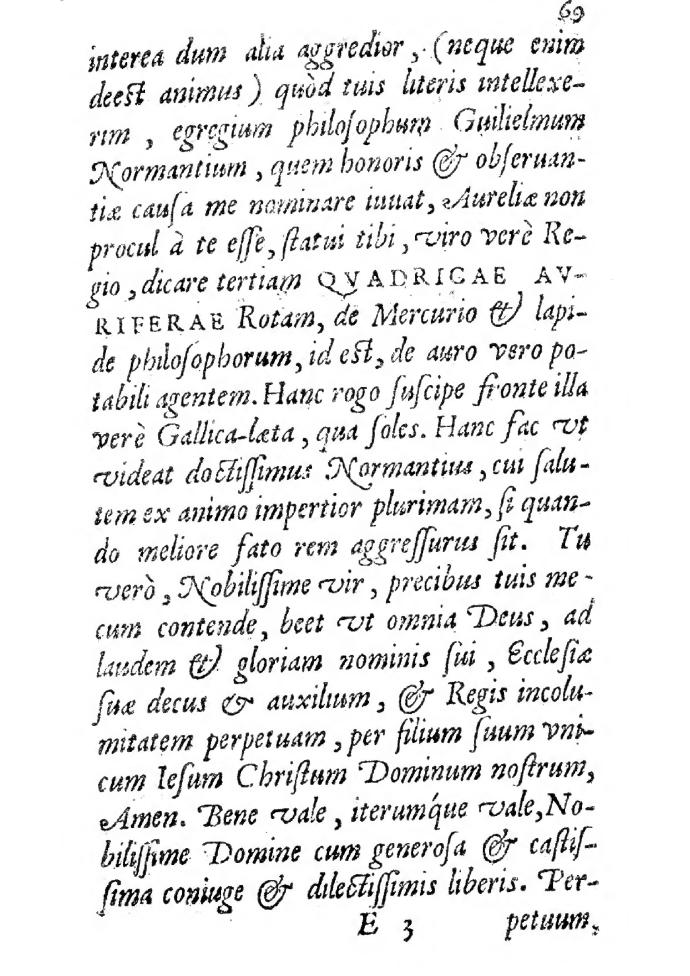 69
interea dum alia aggredior, (neque enim
deest animus) quòd tuis literis intellexe-
rim, egregium philosophum Guilielmum
Normantium, quem honoris & obseruan-
tiæ causa me nominare iuuat, Aureliæ non
procul à te esse, statui tibi, viro verè Re-
gio, dicare tertiam QVADRIGAE AV-
RIFERAE Rotam, de Mercurio & lapi-
de philosophorum, id est, de auro vero po-
tabili agentem. Hanc rogo suscipe fronte illa
verè Gallica-læta, qua soles. Hanc fac vt
videat doctissimus Normantius, cui salu-
tem ex animo impertior plurimam, si quan-
do meliore fato rem aggressurus sit. Tu
verò, Nobilissime vir, precibus tuis me-
cum contende, beet vt omnia Deus, ad
laudem & gloriam nominis sui, Ecclesiæ
suæ decus & auxilium, & Regis incolu-
mitatem perpetuam, per filium suum vni-
cum Iesum Christum Dominum nostrum,
Amen. Bene vale, iterumq́ue vale, No-
bilissime Domine cum generosa & castis-
sima coniuge & dilectissimis liberis. Per-
E 3 petuum,